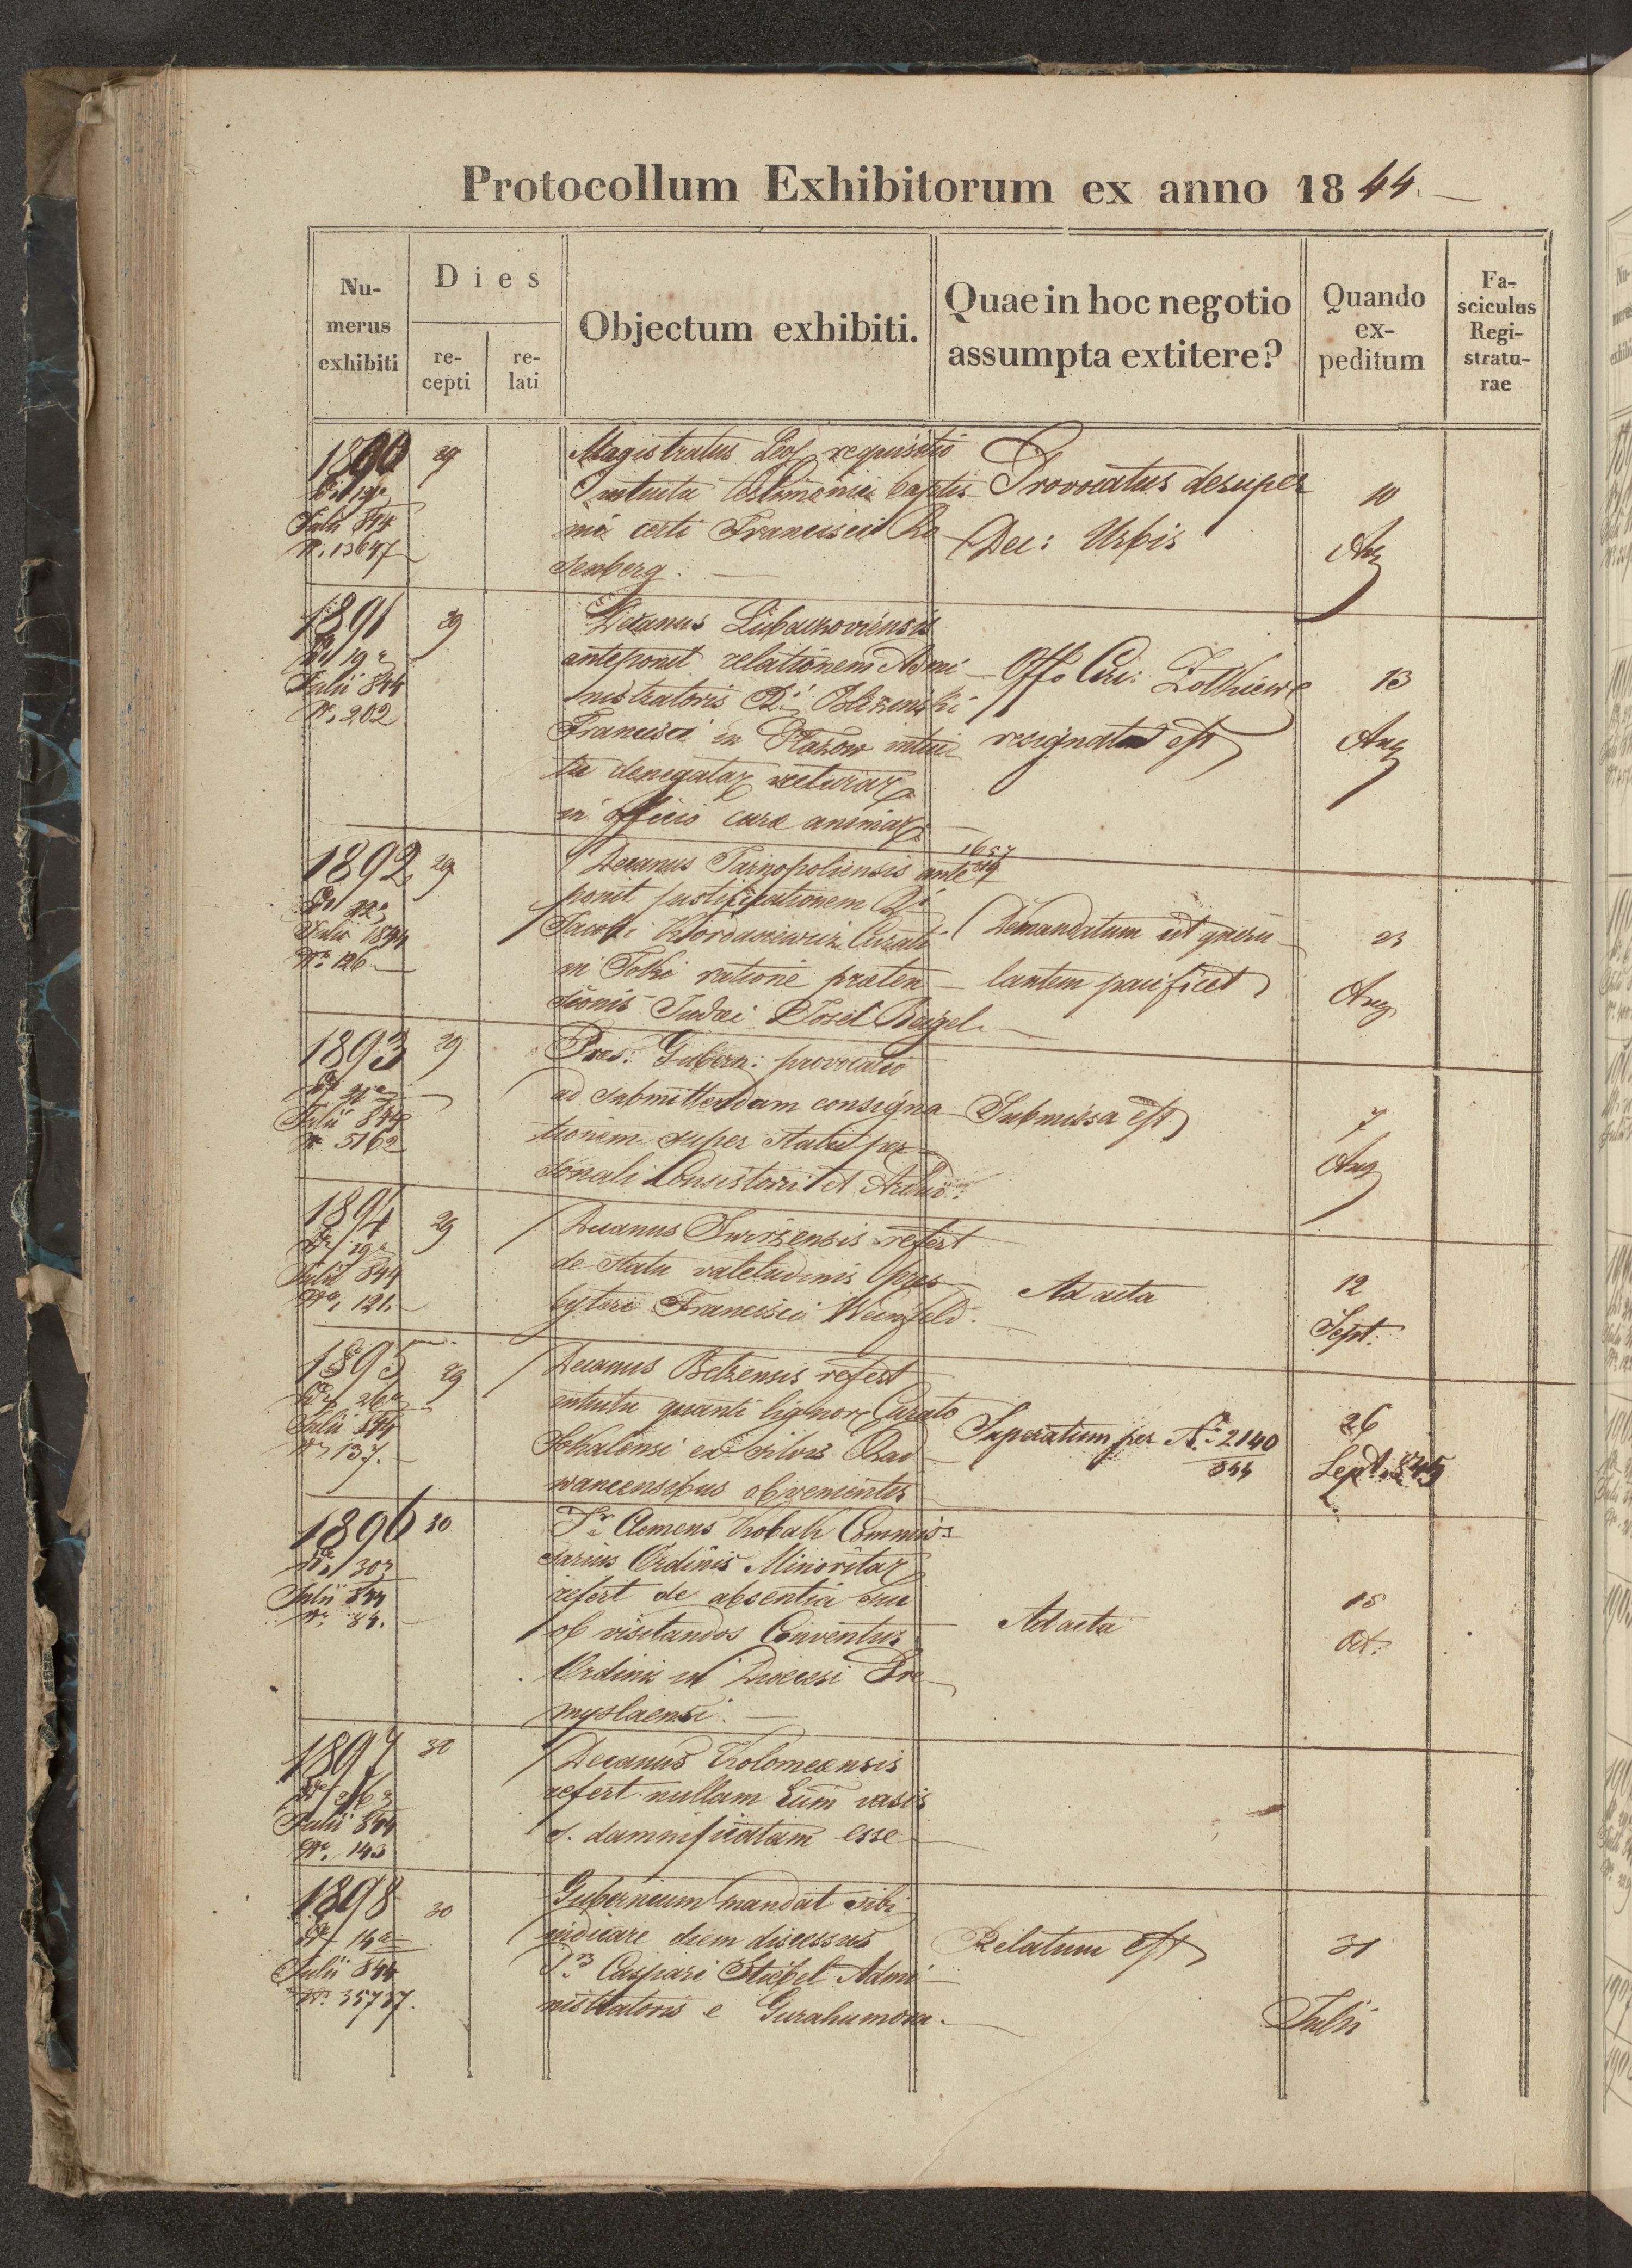 Protocollum Exhibitorum ex anno 1844.
Nu-
merus
exhibiti
Dies
re-
cepti
re-
lati
Objectum exhibiti.
Quae in hoc negotio
assumpta extitere?
Quando
ex-
peditum
Fa-
sciculus
Regi-
stratu-
rae
1890
Julii 844
Nr. 13647
29
Magistratus Leop requisitio
intuitu testimonii baptis
mi certi Francisci Ro
senberg.
Provocatus desuper
Dec: Urbis
10
Aug
1891
19a
Julii 844
Nr. 202
29
Decanus Lubaczoviensis
anteponit relationem Admi
nistratoris
Francisci in intui
tu denegatar vecturar
in officio curae animar
Off. Circ: Zolkiew
resignatum est
13
Aug
1892
22a
Julii 1844
Nr. 126
29
Decanus Tarnopoliensis ante
ponit justificationem
Jacobi Curati
in Toki ratione praeten
sionis Judaei Josel Beigel.
1657
844
Demandatum ut queru
lantem pacificet
23
Aug
1893
Julii 844
Nr. 5162
29
Praes: Gubern: provocatio
ad submittendam consigna
tionem super statu per
sonali Consistorii et
Submissa est
7
Aug
1894
19a
Julii 844
Nr. 121.
29
Decanus refert
de statu valetudinis pres
byteri Francisci Weinfeld.
Ad acta
12
Sept.
1895
26a
Julii 844
Nr. 137.
29
Decanus Belzensis refert
intuitu quanti lignor Curato
Sokalensi ex silvis
obvenientis
Superatum per Nr. 2140
844
26
Sept. 845
1896
30
Julii 844
Nr. 84.
30
Fr. Clemens Kobak Commis
sarius Ordinis Minoritar
refert de absentia sui
ob visitandos Conventus
Ordinis in Dioecesi Pre
mysliensi.
Ad acta
15
Oct.
1897
Julii 844
Nr. 143
30
Decanus Kolomeaensis
refert nullam Eccm vasis
s. damnificatam esse
1898
14a
Julii 844
Nr. 35737.
30
Gubernium mandat sibi
indicare diem discessus
Caspari Stiefel Admi
nistratoris e Gurahumora.
Relatum est
31
Julii